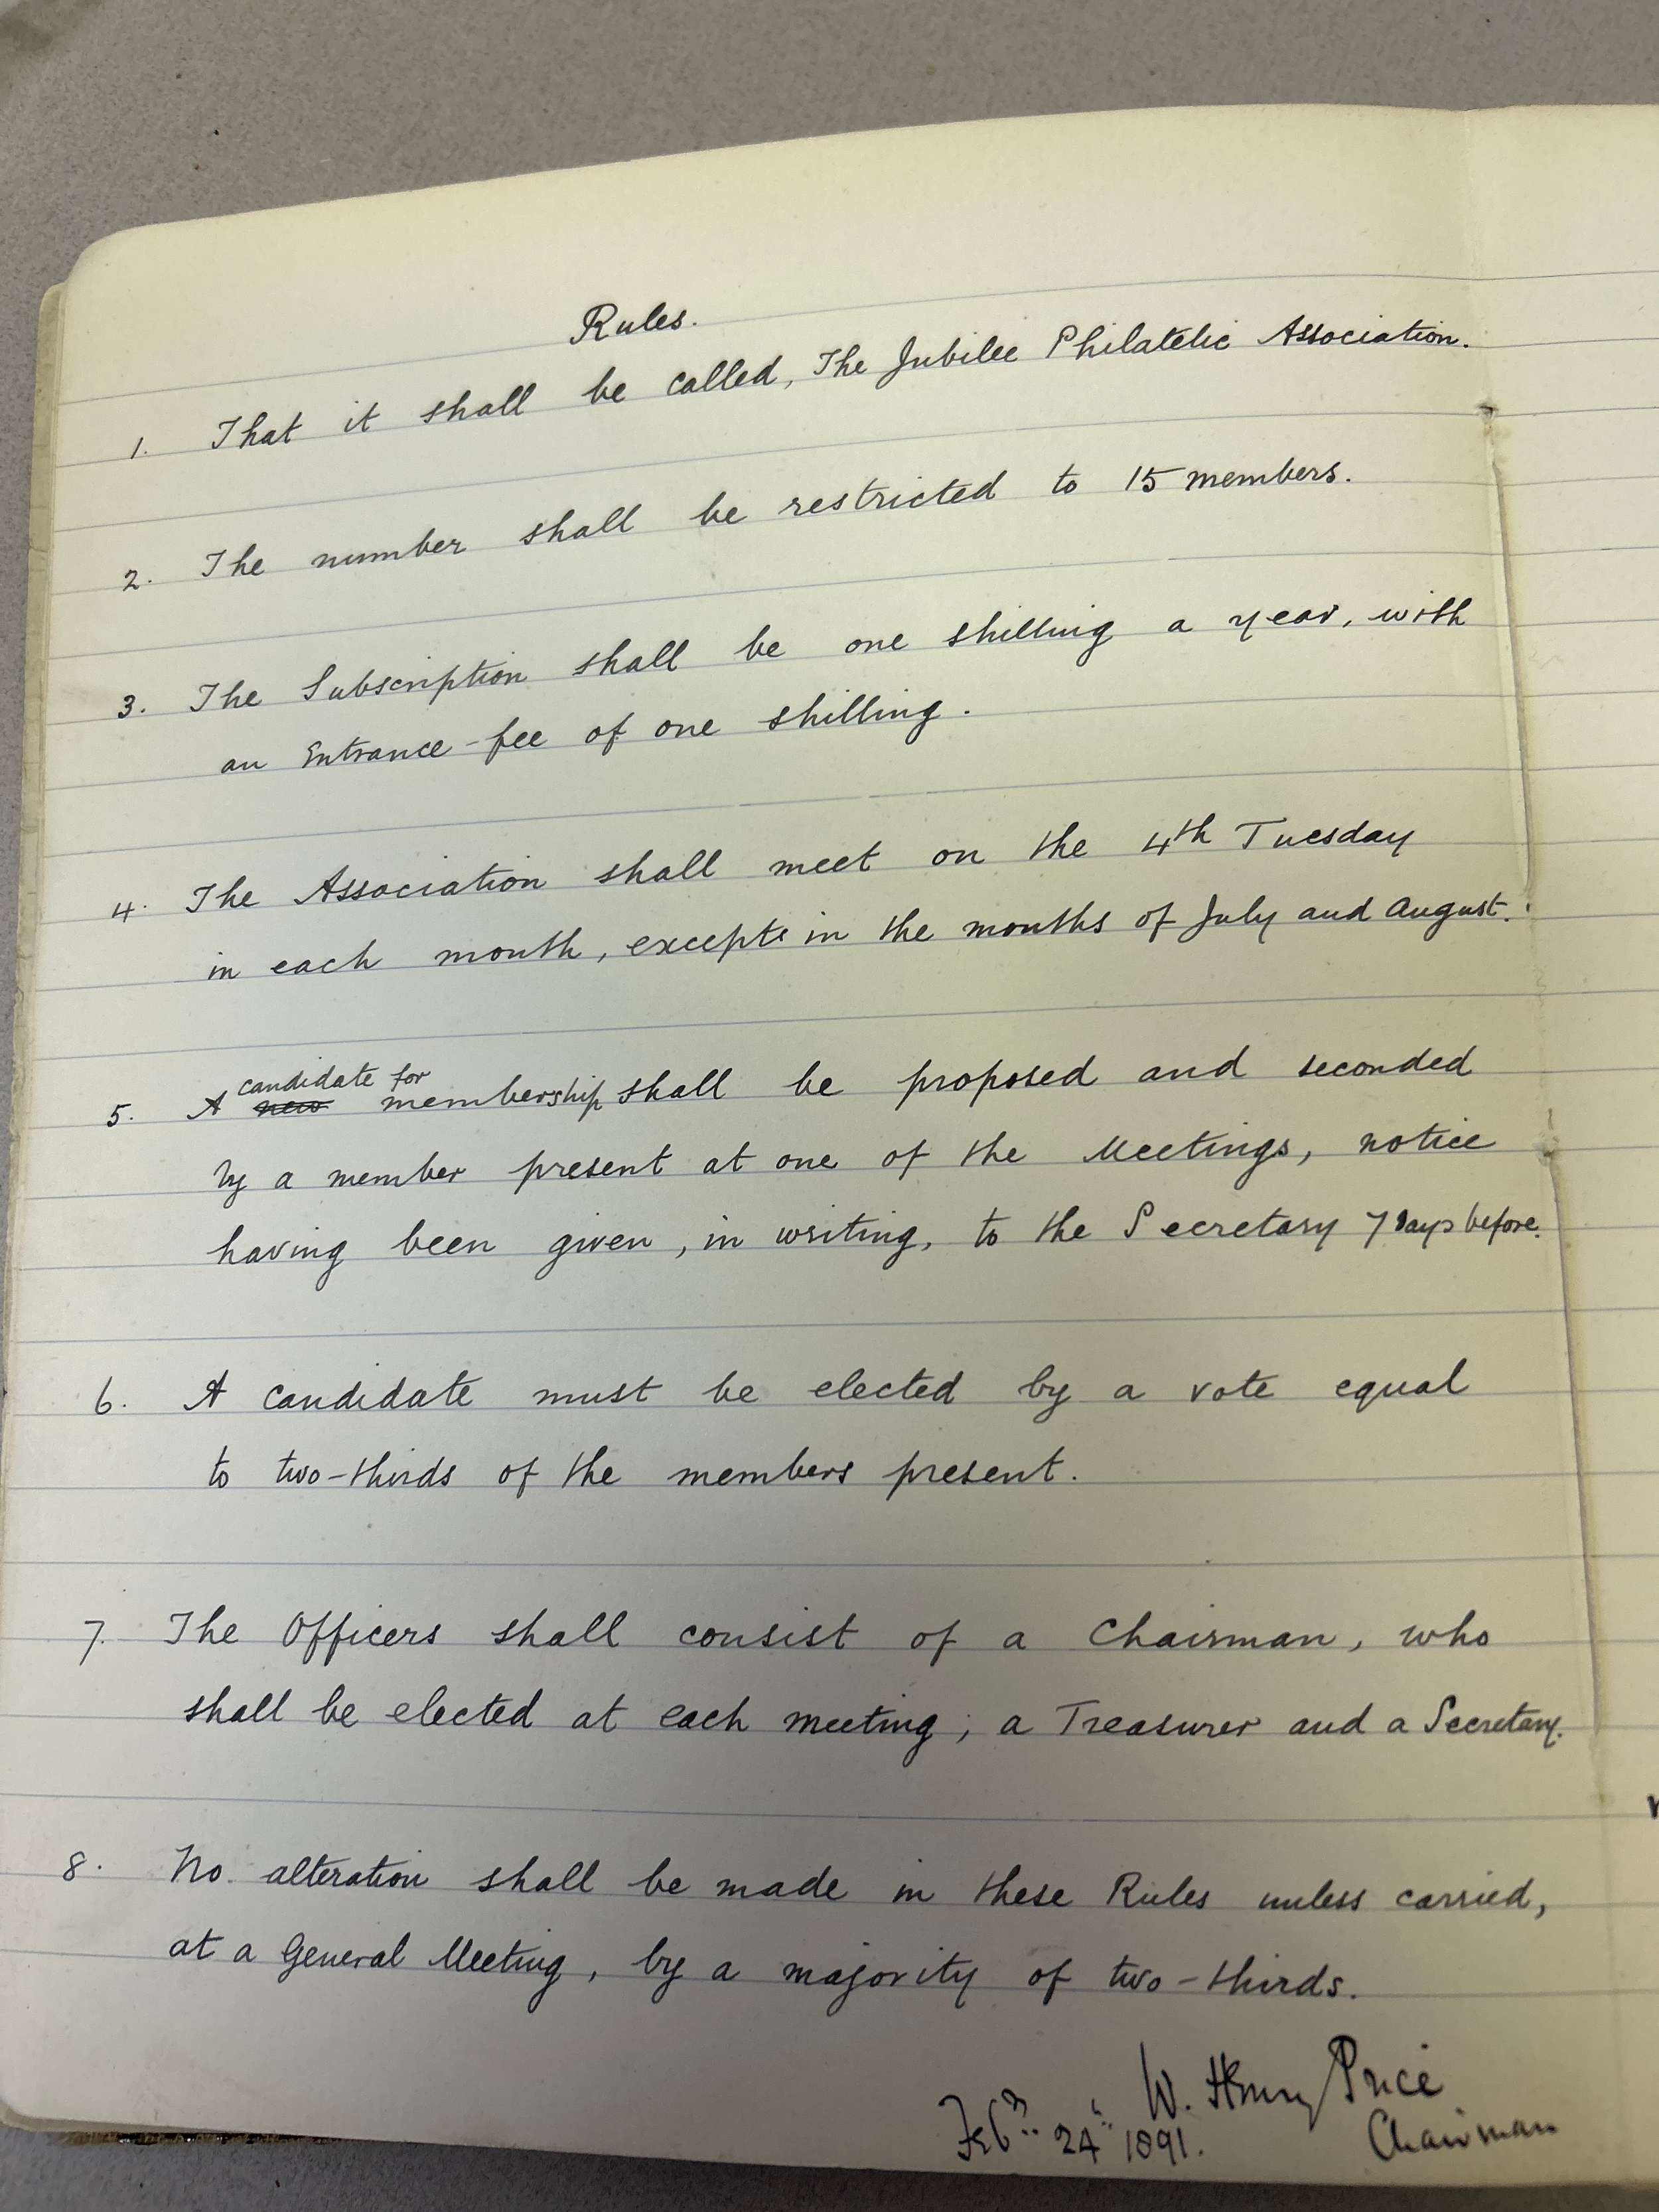 Rules.
1. That it shall be called, The Jubilee Philatelic Association.
2. The number shall be restricted to 15 members.
3. The Subscription shall be one shilling a year, with
an Entrance-fee of one shilling.
4. The Association shall meet on the 4th Tuesday
in each month, excepts in the months of July and August.
candidate for
5. A new membership shall be proposed and seconded
by a member present at one of the Meetings, notice
having been given, in writing, to the Secretary 7 days before.
6. A candidate must be elected by a vote equal
to two-thirds of the members present.
7. The Officers shall consist of a Chairman, who
shall be elected at each meeting; a Treasurer and a Secretary.
8. No alteration shall be made in these Rules unless carried,
at a General Meeting, by a majority of two-thirds.
W. Henry Price
Feby 24th 1891. Chairman